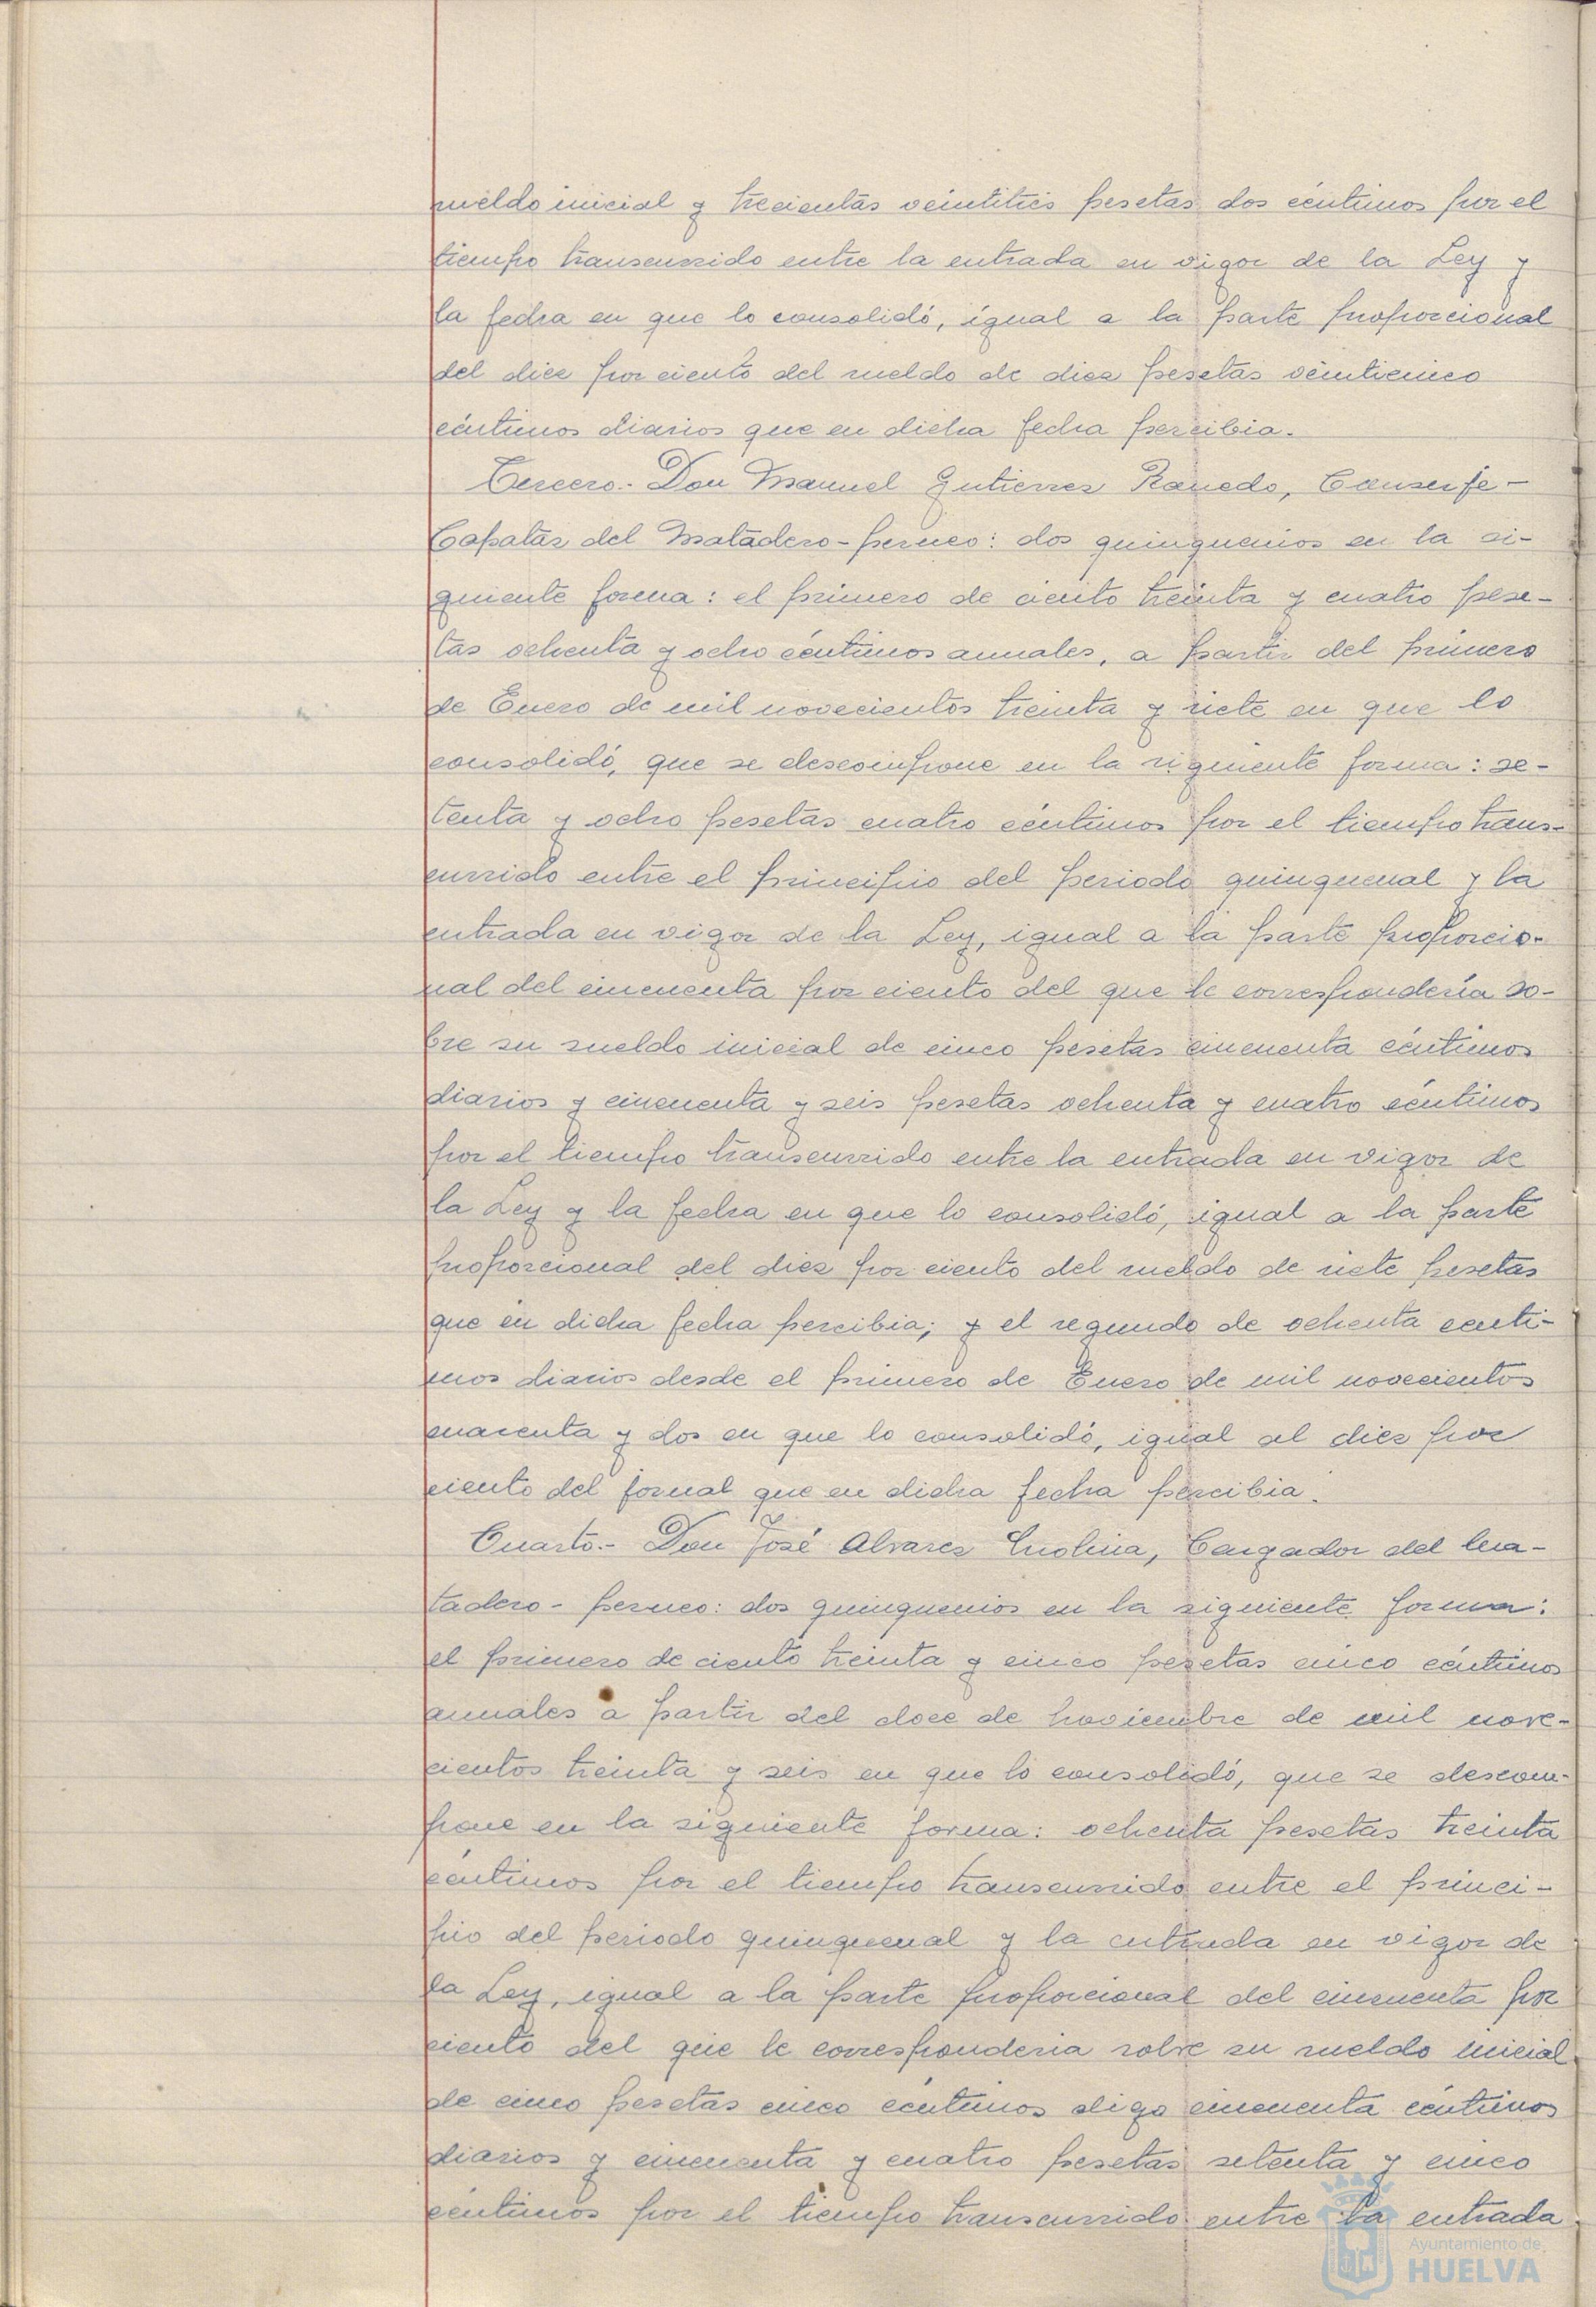 sueldo inicial y trecientas veintitres pesetas dos céntimos por el
tiempo transcurrido entre la entrada en vigor de la Ley y
la fecha en que lo consolidó, igual a la parte proporcional
del diez por ciento del sueldo de diez pesetas veinticinco
céntimos diarios que en dicha fecha percibia.
Tercero.- Don Manuel Gutierrez Ranedo, Conserje-
Capataz del Matadero-perneo: dos quinquenios en la si-
guiente forma: el primero de ciento treinta y cuatro pese-
tas ochenta y ocho céntimos anuales, a partir del primero
de Enero de mil novecientos treinta y siete en que lo
consolidó, que se descompone en la siguiente forma: se-
tenta y ocho pesetas cuatro céntimos por el tiempo trans-
currido entre el principio del periodo quinquenal y la
entrada en vigor de la Ley, igual a la parte proporcio-
nal del cincuenta por ciento del que le correspondería so-
bre su sueldo inicial de cinco pesetas cincuenta céntimos
diarios y cincuenta y seis pesetas ochenta y cuatro céntimos
por el tiempo transcurrido entre la entrada en vigor de
la Ley y la fecha en que lo consolidó, igual a la parte
proporcional del diez por ciento del sueldo de siete pesetas
que en dicha fecha percibia; y el segundo de ochenta centi-
mos diarios desde el primero de Enero de mil novecientos
cuarenta y dos en que lo consolidó, igual al diez por
ciento del jornal que en dicha fecha percibia.
Cuarto.- Don José Alvarez Molina, Cargador del Ma-
tadero-perneo: dos quinquenios en la siguiente forma:
el primero de ciento treinta y cinco pesetas cinco céntimos
anuales a partir del doce de Noviembre de mil nove-
cientos treinta y seis en que lo consolidó, que se descom-
pone en la siguiente forma: ochenta pesetas treinta
céntimos por el tiempo transcurrido entre el princi-
pio del periodo quinquenal y la entrada en vigor de
la Ley, igual a la parte proporcional del cincuenta por
ciento del que le correspondería sobre su sueldo inicial
de cinco pesetas cinco céntimos digo cincuenta céntimos
diarios y cincuenta y cuatro pesetas setenta y cinco
céntimos por el tiempo transcurrido entre la entrada
Ayuntamiento de
HUELVA